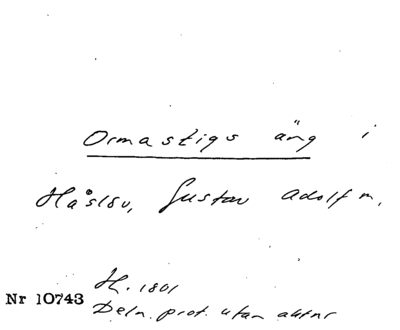 Ormastigs äng i
Håslöv, Gustav Adolf m.
H. 1801
Nr 10743
Deln. prot. utan aktnr